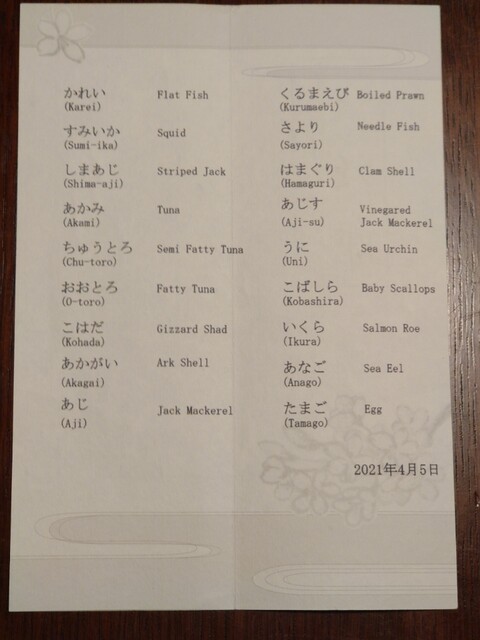 かれい Flat Fish
(Karei)
すみいか Squid
(Sumi-ika)
しまあじ Striped Jack
(Shima-aji)
あかみ Tuna
(Akami)
ちゅうとろ Semi Fatty Tuna
(Chu-toro)
おおとろ Fatty Tuna
(O-toro)
こはだ Gizzard Shad
(Kohada)
あかがい Ark Shell
(Akagai)
あじ Jack Mackerel
(Aji)
くるまえび Boiled Prawn
(Kurumaebi)
さより Needle Fish
(Sayori)
はまぐり Clam Shell
(Hamaguri)
あじす Vinegared
(Aji-su) Jack Mackerel
うに Sea Urchin
(Uni)
こばしら Baby Scallops
(Kobashira)
いくら Salmon Roe
(Ikura)
あなご Sea Eel
(Anago)
たまご Egg
(Tamago)
2021年4月5日